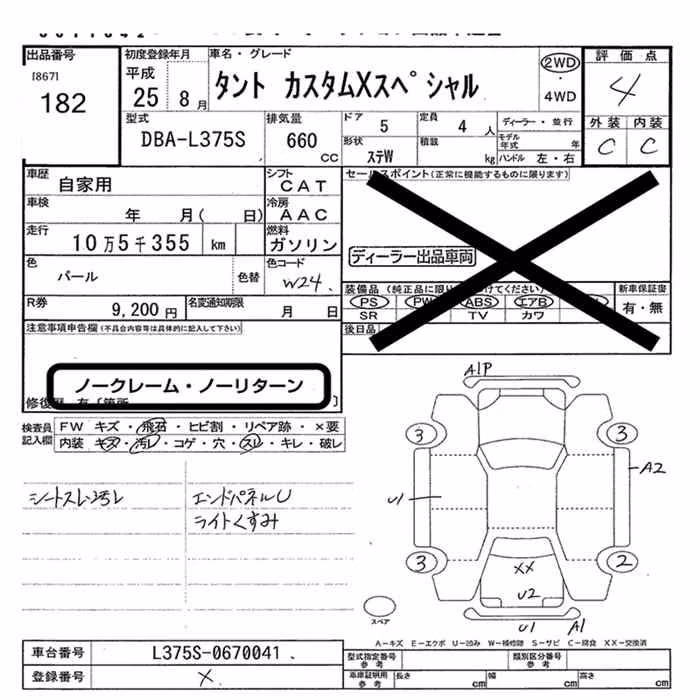 出品番号
[867]
182
初度登録年月
平成
25 8月
車名・グレード
タント カスタムXスペシャル
2WD
・
4WD
評価点
4
外装 内装
C C
型式
DBA-L375S
排気量
660
cc
ドア 5
定員 4 人
形状 ステW
積載 kg
ディーラー・並行
モデル年式 年
ハンドル 左・右
車歴
自家用
シフト
CAT
車検
年 月( 日)
冷房
AAC
走行
10万5千355 km
燃料
ガソリン
色
パール
色替
色コード
W24.
R券
9,200円
名変通知期限
月 日
セールスポイント(正常に機能するものに限ります)
ディーラー出品車両
装備品
PS PW ABS エアB
SR TV カワ
新車保証書
有・無
後日品
注意事項申告欄(不具合内容等は具体的に記入して下さい)
ノークレーム・ノーリターン
検査員記入欄
FW キズ・飛石・ヒビ割・リペア跡・×要
内装 キズ・汚レ・コゲ・穴・スレ・キレ・破レ
シートスレ・汚レ
エンドパネルU
ライトくすみ
A1P
3 3
A2
U1
3 2
XX
U2
U1 A1
スペア
A-キズ E-エクボ U-凹み W-補修跡 S-サビ C-腐食 XX-交換済
車台番号
L375S-0670041
登録番号
×
型式指定番号
参考
類別区分番号
参考
車庫証明用
参考
長さ cm
幅 cm
高さ cm